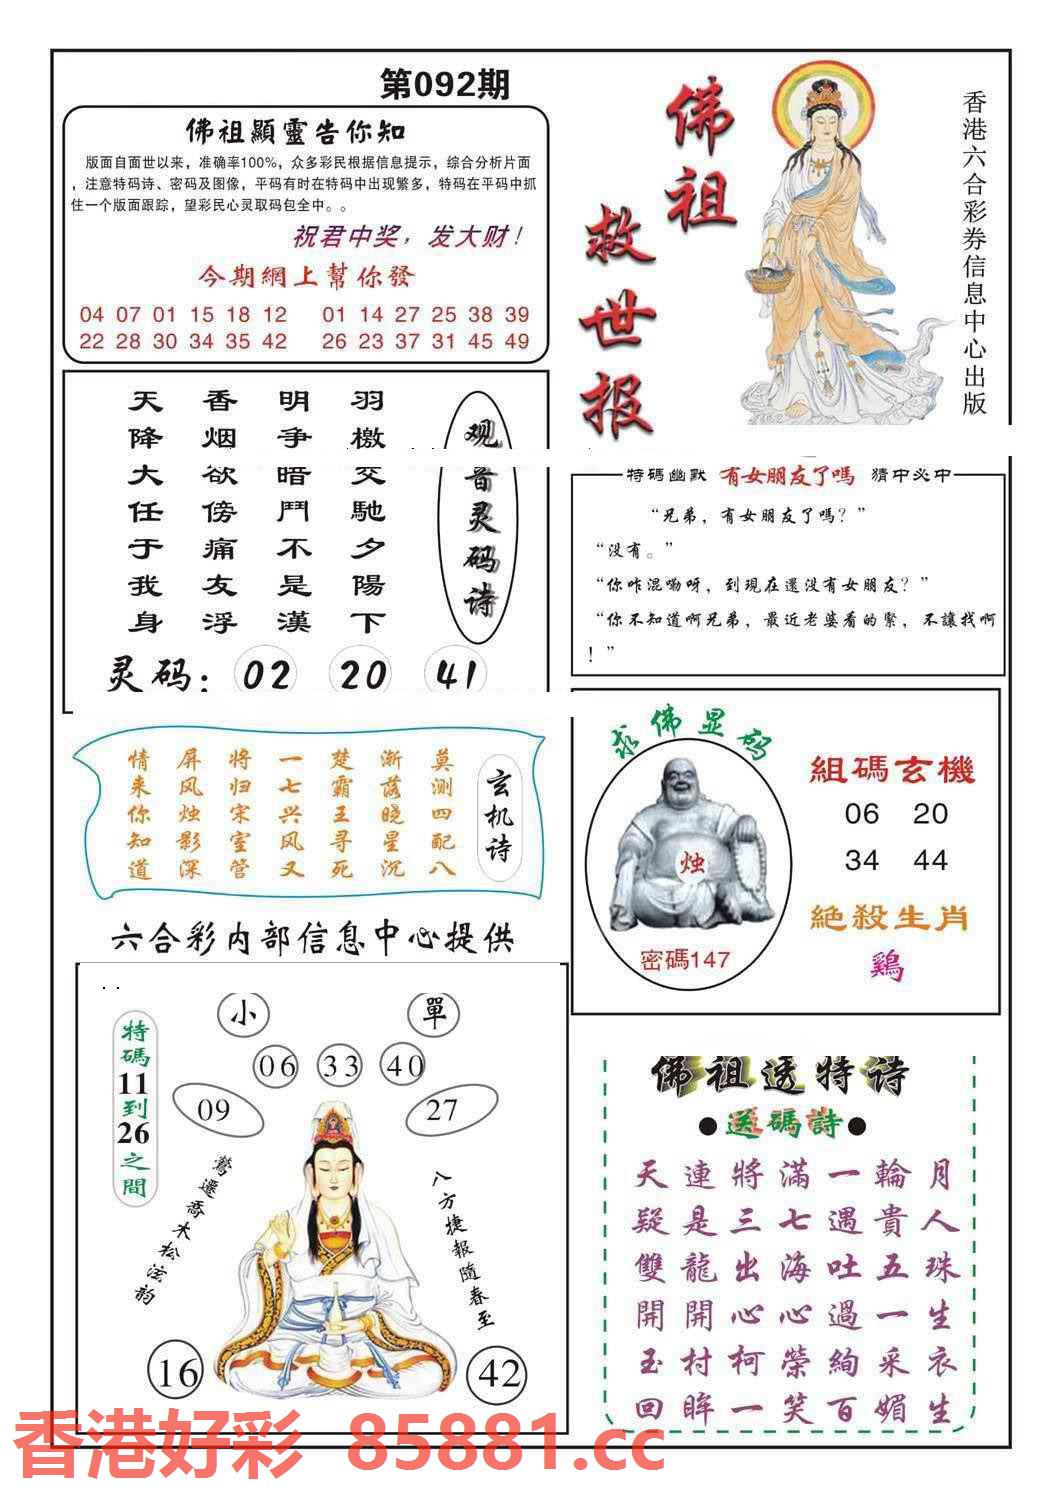 第092期
佛祖顯靈告你知
版面自面世以来，准确率100%，众多彩民根据信息提示，综合分析片面
，注意特码诗、密码及图像，平码有时在特码中出现繁多，特码在平码中抓
住一个版面跟踪，望彩民心灵取码包全中。。
祝君中奖，发大财！
今期網上幫你發
04 07 01 15 18 12 01 14 27 25 38 39
22 28 30 34 35 42 26 23 37 31 45 49
佛祖
救世报
香港六合彩券信息中心出版
天香明羽
降烟争檄
大欲暗交
任傍鬥馳
于痛不夕
我友是陽
身浮漢下
观音灵码诗
灵码：02 20 41
特碼幽默 有女朋友了嗎 猜中必中
“兄弟，有女朋友了嗎？”
“没有。”
“你咋混嘞呀，到現在還没有女朋友？”
“你不知道啊兄弟，最近老婆看的緊，不讓找啊
！”
情屏将一楚渐莫
来风归七霸落测
你烛宋兴王晓四
知影室风寻星配
道深管又死沉八
玄机诗
求佛显码
烛
密碼147
組碼玄機
06 20
34 44
絕殺生肖
鷄
六合彩内部信息中心提供
小 單
06 33 40
09 27
特碼11到26之間
鶯遷喬木松泫韵
八方捷報隨春至
16 42
佛祖透特诗
●送碼詩●
天連將滿一輪月
疑是三七遇貴人
雙龍出海吐五珠
開開心心過一生
玉村柯榮絢采衣
回眸一笑百媚生
香港好彩 85881.cc